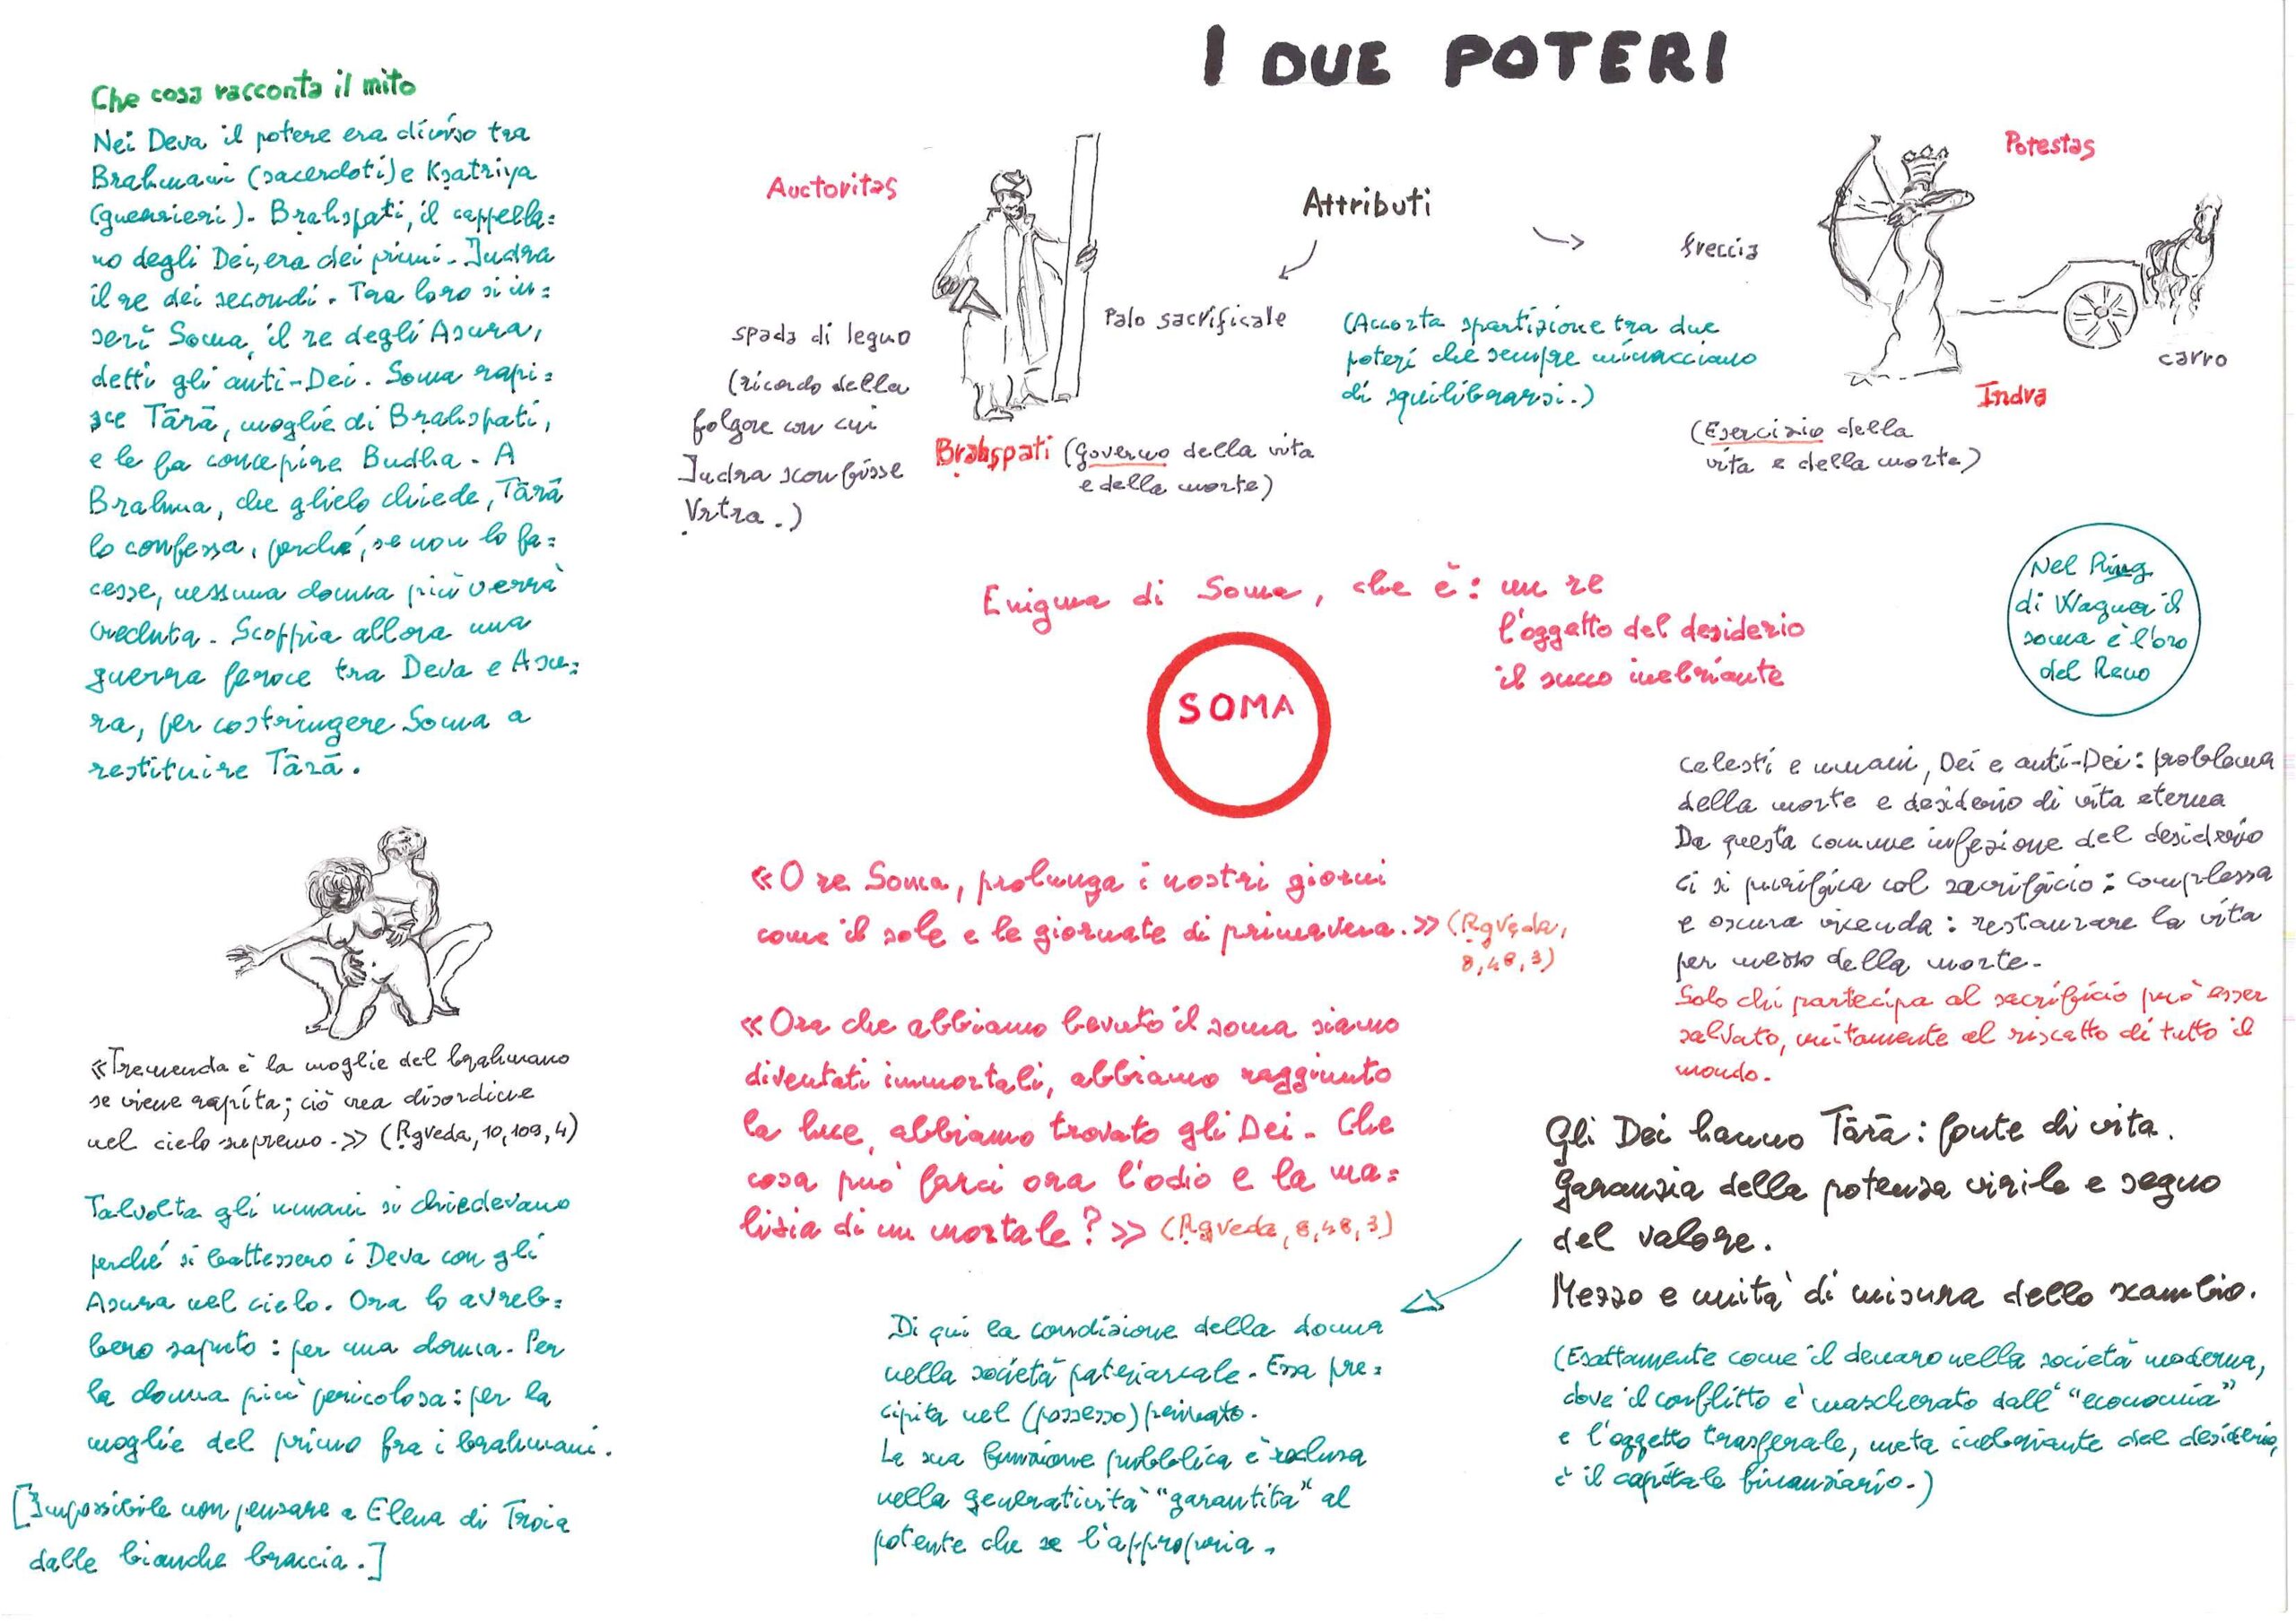 I DUE POTERI
Che cosa racconta il mito
Nei Deva il potere era diviso tra
Brahmani (sacerdoti) e Kṣatriya
(guerrieri). Bṛahspati, il cappella=
no degli Dei, era dei primi. Indra
il re dei secondi. Tra loro si in=
serì Soma, il re degli Asura,
detti gli anti-Dei. Soma rapi=
sce Tārā, moglie di Bṛahspati,
e le fa concepire Budha. A
Brahma, che glielo chiede, Tārā
lo confessa, perché, se non lo fa=
cesse, nessuna donna più verrà
creduta. Scoppia allora una
guerra feroce tra Deva e Asu=
ra, per costringere Soma a
restituire Tārā.
«Tremenda è la moglie del brahmano
se viene rapita; ciò crea disordine
nel cielo supremo.» (Ṛgveda, 10, 109, 4)
Talvolta gli umani si chiedevano
perché si battessero i Deva con gli
Asura nel cielo. Ora lo avreb=
bero saputo: per una donna. Per
la donna più pericolosa: per la
moglie del primo fra i brahmani.
[Impossibile non pensare a Elena di Troia
dalle bianche braccia.]
Auctoritas
Attributi
Potestas
freccia
Palo sacrificale
spada di legno
(ricordo della
folgore con cui
Indra sconfisse
Vṛtra.)
(Accorta spartizione tra due
poteri che sempre minacciano
di squilibrarsi.)
carro
Indra
Bṛahspati (Governo della vita
e della morte)
(Esercizio della
vita e della morte)
Enigma di Soma, che è: un re
l'oggetto del desiderio
il succo inebriante
SOMA
Nel Ring
di Wagner il
soma è l'oro
del Reno
«O re Soma, prolunga i nostri giorni
come il sole e le giornate di primavera.» (Ṛgveda,
8, 48, 3)
«Ora che abbiamo bevuto il soma siamo
diventati immortali, abbiamo raggiunto
la luce, abbiamo trovato gli Dei. Che
cosa può farci ora l'odio e la ma=
lizia di un mortale?» (Ṛgveda, 8, 48, 3)
Celesti e umani, Dei e anti-Dei: problema
della morte e desiderio di vita eterna
Da questa comune infezione del desiderio
ci si purifica col sacrificio: complessa
e oscura vicenda: restaurare la vita
per mezzo della morte.
Solo chi partecipa al sacrificio può esser
salvato, unitamente al riscatto di tutto il
mondo.
Gli Dei hanno Tārā: fonte di vita.
Garanzia della potenza virile e segno
del valore.
Mezzo e unità di misura dello scambio.
(Esattamente come il denaro nella società moderna,
dove il conflitto è mascherato dall' "economia"
e l'oggetto trasferale, meta inebriante del desiderio,
è il capitale finanziario.)
Di qui la condizione della donna
nella società patriarcale. Essa pre=
cipita nel (possesso) privato.
La sua funzione pubblica è reclusa
nella generatività "garantita" al
potente che se l'appropria.